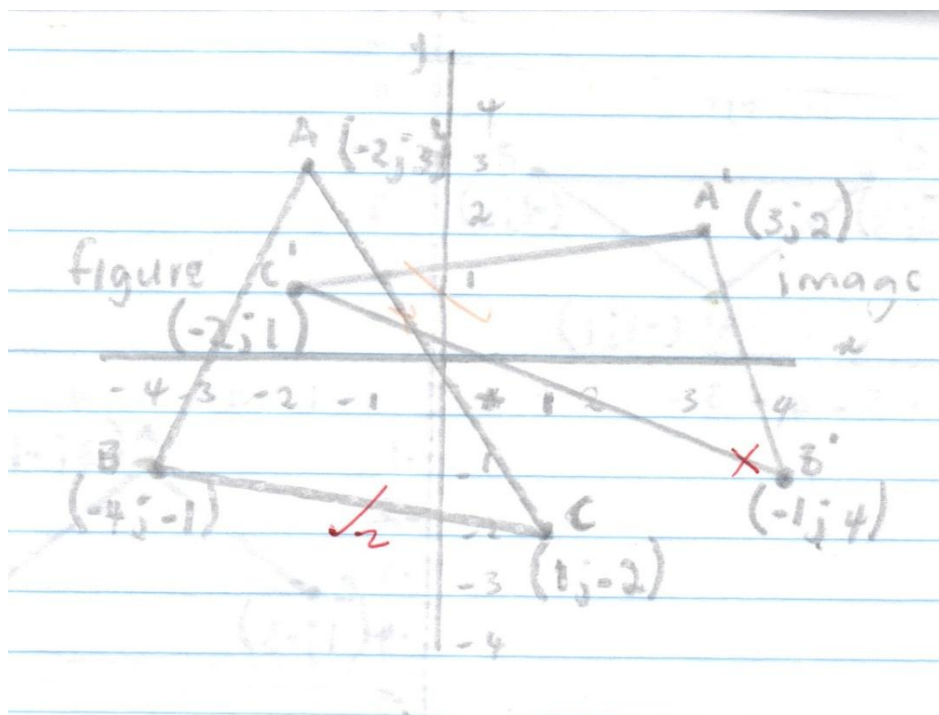 y
4
A (-2;3) 3
A' (3;2)
2
figure C' 1 image
(-2;1)
x
-4 -3 -2 -1 1 2 3 4
B -1 B'
(-4;-1) (-1;4)
-2 C
-3 (1;-2)
-4